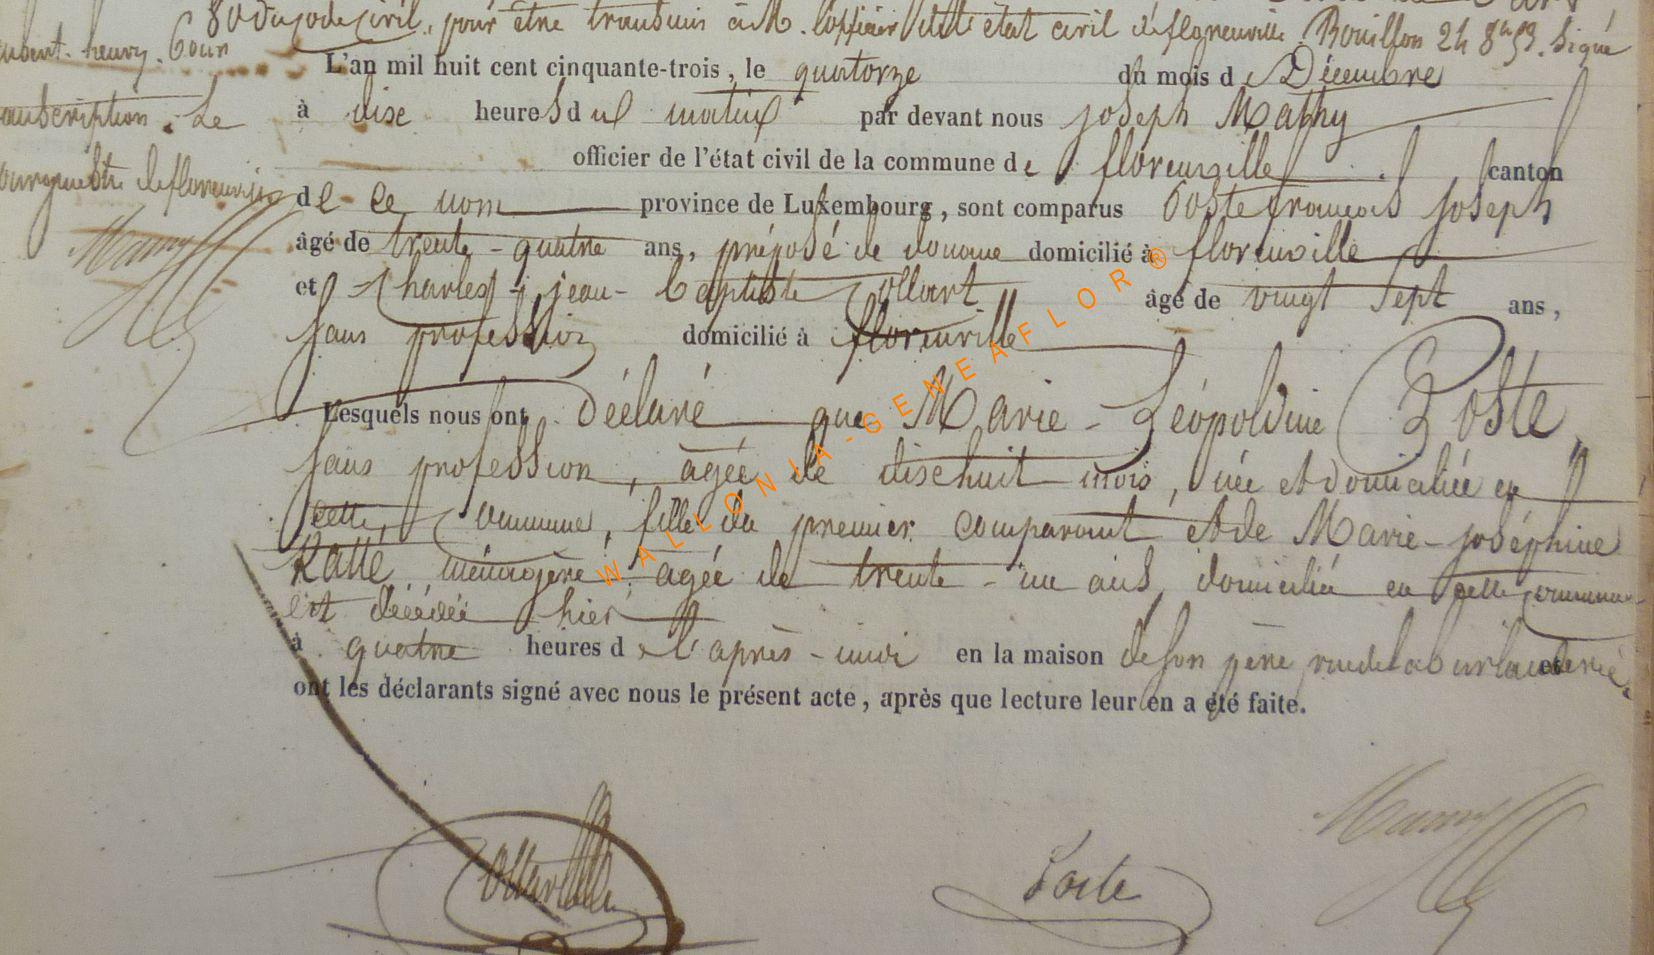 80 du code civil, pour être transmis à M. l'officier de l'état civil de florenville. Bouillon 24 8bre 53. Signé
hubert. henry. Pour
transcription. Le
bourgmestre de florenville
L'an mil huit cent cinquante-trois, le quatorze du mois de Décembre
à dix heures du matin par devant nous joseph Mathy
officier de l'état civil de la commune de florenville canton
de ce nom province de Luxembourg, sont comparus Poste françois joseph
âgé de trente-quatre ans, préposé de douane domicilié à florenville
et Charles-jean-baptiste Collart âgé de vingt sept ans,
sans profession domicilié à florenville
Lesquels nous ont déclaré que Marie-Léopoldine Poste,
sans profession, agée de dixhuit mois, née et domiciliée en
cette commune, fille du premier comparant et de Marie-joséphine
Ratté, ménagère agée de trente-un ans, domiciliée en cette commune
est décédée hier
à quatre heures de l'après-midi en la maison de son père rue de la et
ont les déclarants signé avec nous le présent acte, après que lecture leur en a été faite.
Poste
WALLONIA-GENEAFLOR®